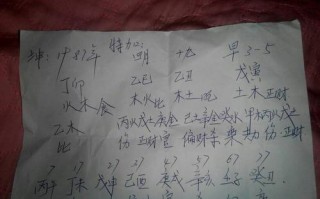 坤：1987年 特加： 四月 十九 早3-5
丁卯 乙巳 乙丑 戊寅
火木食 木火比 木土 土木正财
乙木 丙火戊土庚金 己土辛金癸水 甲木丙火戊土
比 伤 正财官 偏财杀枭 劫伤正财
7 17 27 37 47 57 67 77
丙午 丁未 戊申 己酉 庚戌 辛亥 壬子 癸丑